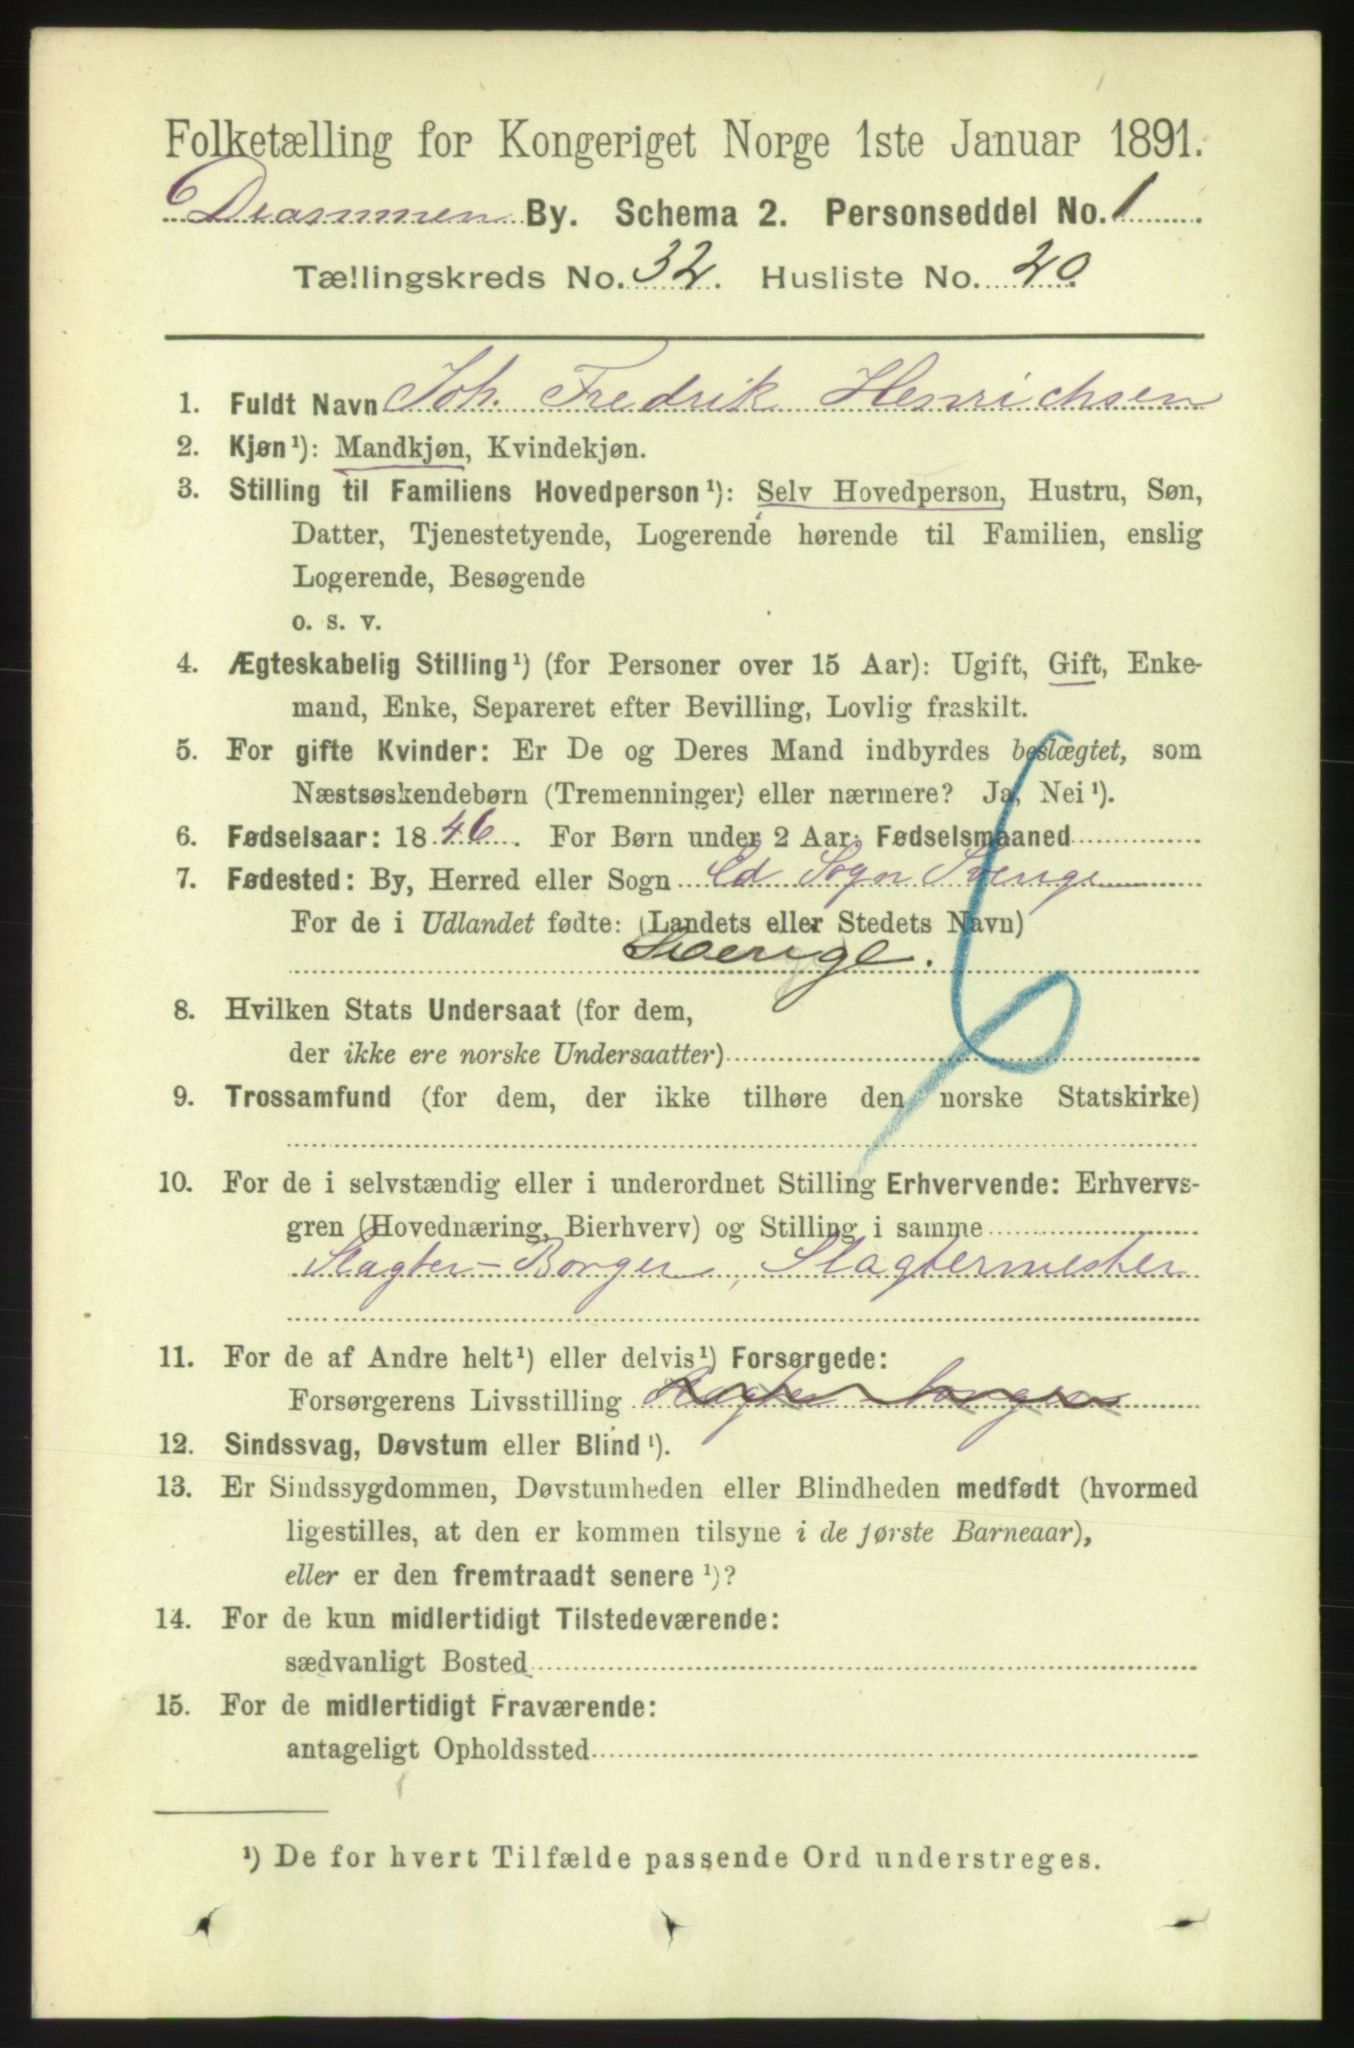 Folketælling for Kongeriget Norge 1ste Januar 1891.
6
Drammen By. Schema 2. Personseddel No. 1
Tællingskreds No. 32. Husliste No. 20.
1. Fuldt Navn Joh. Fredrik Henrichsen
2. Kjøn¹): Mandkjøn, Kvindekjøn.
3. Stilling til Familiens Hovedperson¹): Selv Hovedperson, Hustru, Søn,
Datter, Tjenestetyende, Logerende hørende til Familien, enslig
Logerende, Besøgende
o. s. v.
4. Ægteskabelig Stilling¹) (for Personer over 15 Aar): Ugift, Gift, Enke-
mand, Enke, Separeret efter Bevilling, Lovlig fraskilt.
5. For gifte Kvinder: Er De og Deres Mand indbyrdes beslægtet, som
Næstsøskendebørn (Tremenninger) eller nærmere? Ja, Nei¹).
6. Fødselsaar: 1846. For Børn under 2 Aar: Fødselsmaaned
7. Fødested: By, Herred eller Sogn Ed Sogn Sverige
For de i Udlandet fødte: (Landets eller Stedets Navn)
Sverige.
8. Hvilken Stats Undersaat (for dem,
der ikke ere norske Undersaatter)
9. Trossamfund (for dem, der ikke tilhøre den norske Statskirke)
10. For de i selvstændig eller i underordnet Stilling Erhvervende: Erhvervs-
gren (Hovednæring, Bierhverv) og Stilling i samme
Slagter-Borger, Slagtermester
11. For de af Andre helt¹) eller delvis¹) Forsørgede:
Forsørgerens Livsstilling Slagter-borger
12. Sindssvag, Døvstum eller Blind¹).
13. Er Sindssygdommen, Døvstumheden eller Blindheden medfødt (hvormed
ligestilles, at den er kommen tilsyne i de første Barneaar),
eller er den fremtraadt senere¹)?
14. For de kun midlertidigt Tilstedeværende:
sædvanligt Bosted
15. For de midlertidigt Fraværende:
antageligt Opholdssted
¹) De for hvert Tilfælde passende Ord understreges.